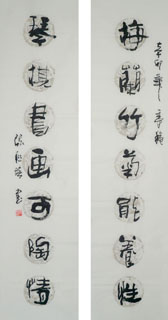 辛卯
梅蘭竹菊能養性
琴棋書画可陶情